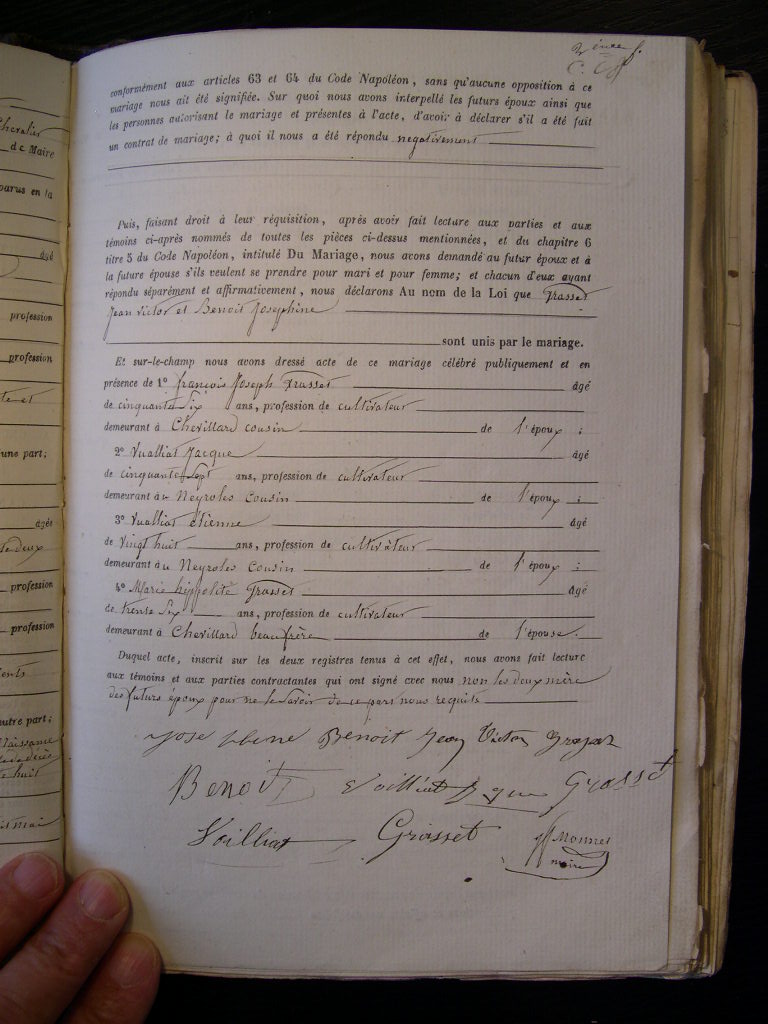 conformément aux articles 63 et 64 du Code Napoléon, sans qu'aucune opposition à ce
mariage nous ait été signifiée. Sur quoi nous avons interpellé les futurs époux ainsi que
les personnes autorisant le mariage et présentes à l'acte, d'avoir à déclarer s'il a été fait
un contrat de mariage; à quoi il nous a été répondu negativement
Puis, faisant droit à leur réquisition, après avoir fait lecture aux parties et aux
témoins ci-après nommés de toutes les pièces ci-dessus mentionnées, et du chapitre 6
titre 5 du Code Napoléon, intitulé Du Mariage, nous avons demandé au futur époux et à
la future épouse s'ils veulent se prendre pour mari et pour femme; et chacun d'eux ayant
répondu séparément et affirmativement, nous déclarons Au nom de la Loi que Grasset
Jean Victor et Benoit Josephine
sont unis par le mariage.
Et sur-le-champ nous avons dressé acte de ce mariage célébré publiquement et en
présence de 1° françois Joseph Grasset âgé
de cinquante Six ans, profession de cultivateur
demeurant à Chevillard cousin de l'époux ;
2° Vualliat Jacque âgé
de cinquante Sept ans, profession de cultivateur
demeurant à Neyroles Cousin de l'époux ;
3° Vualliat étienne âgé
de Vingt huit ans, profession de cultivateur
demeurant à Neyroles Cousin de l'époux ;
4° Marie hippolite Grasset âgé
de trente Six ans, profession de cultivateur
demeurant à Chevillard beaufrère de l'épouse.
Duquel acte, inscrit sur les deux registres tenus à cet effet, nous avons fait lecture
aux témoins et aux parties contractantes qui ont signé avec nous non les deux mère
des futurs époux pour ne le Savoir de ce par nous requits
Josephine Benoit Jean Victor Grasset
Benoit Grosset
Voilliat Grasset Monnet
maire
Chevalier
de Maire
parus en la
âgé
profession
profession
une part;
âgée
profession
profession
autre part;
Naissance